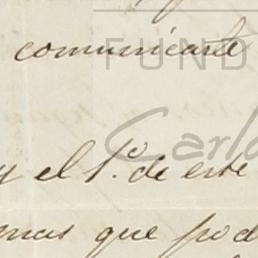 comunicarte
FUND
Carlo
y el 1.º de este
mas que pod